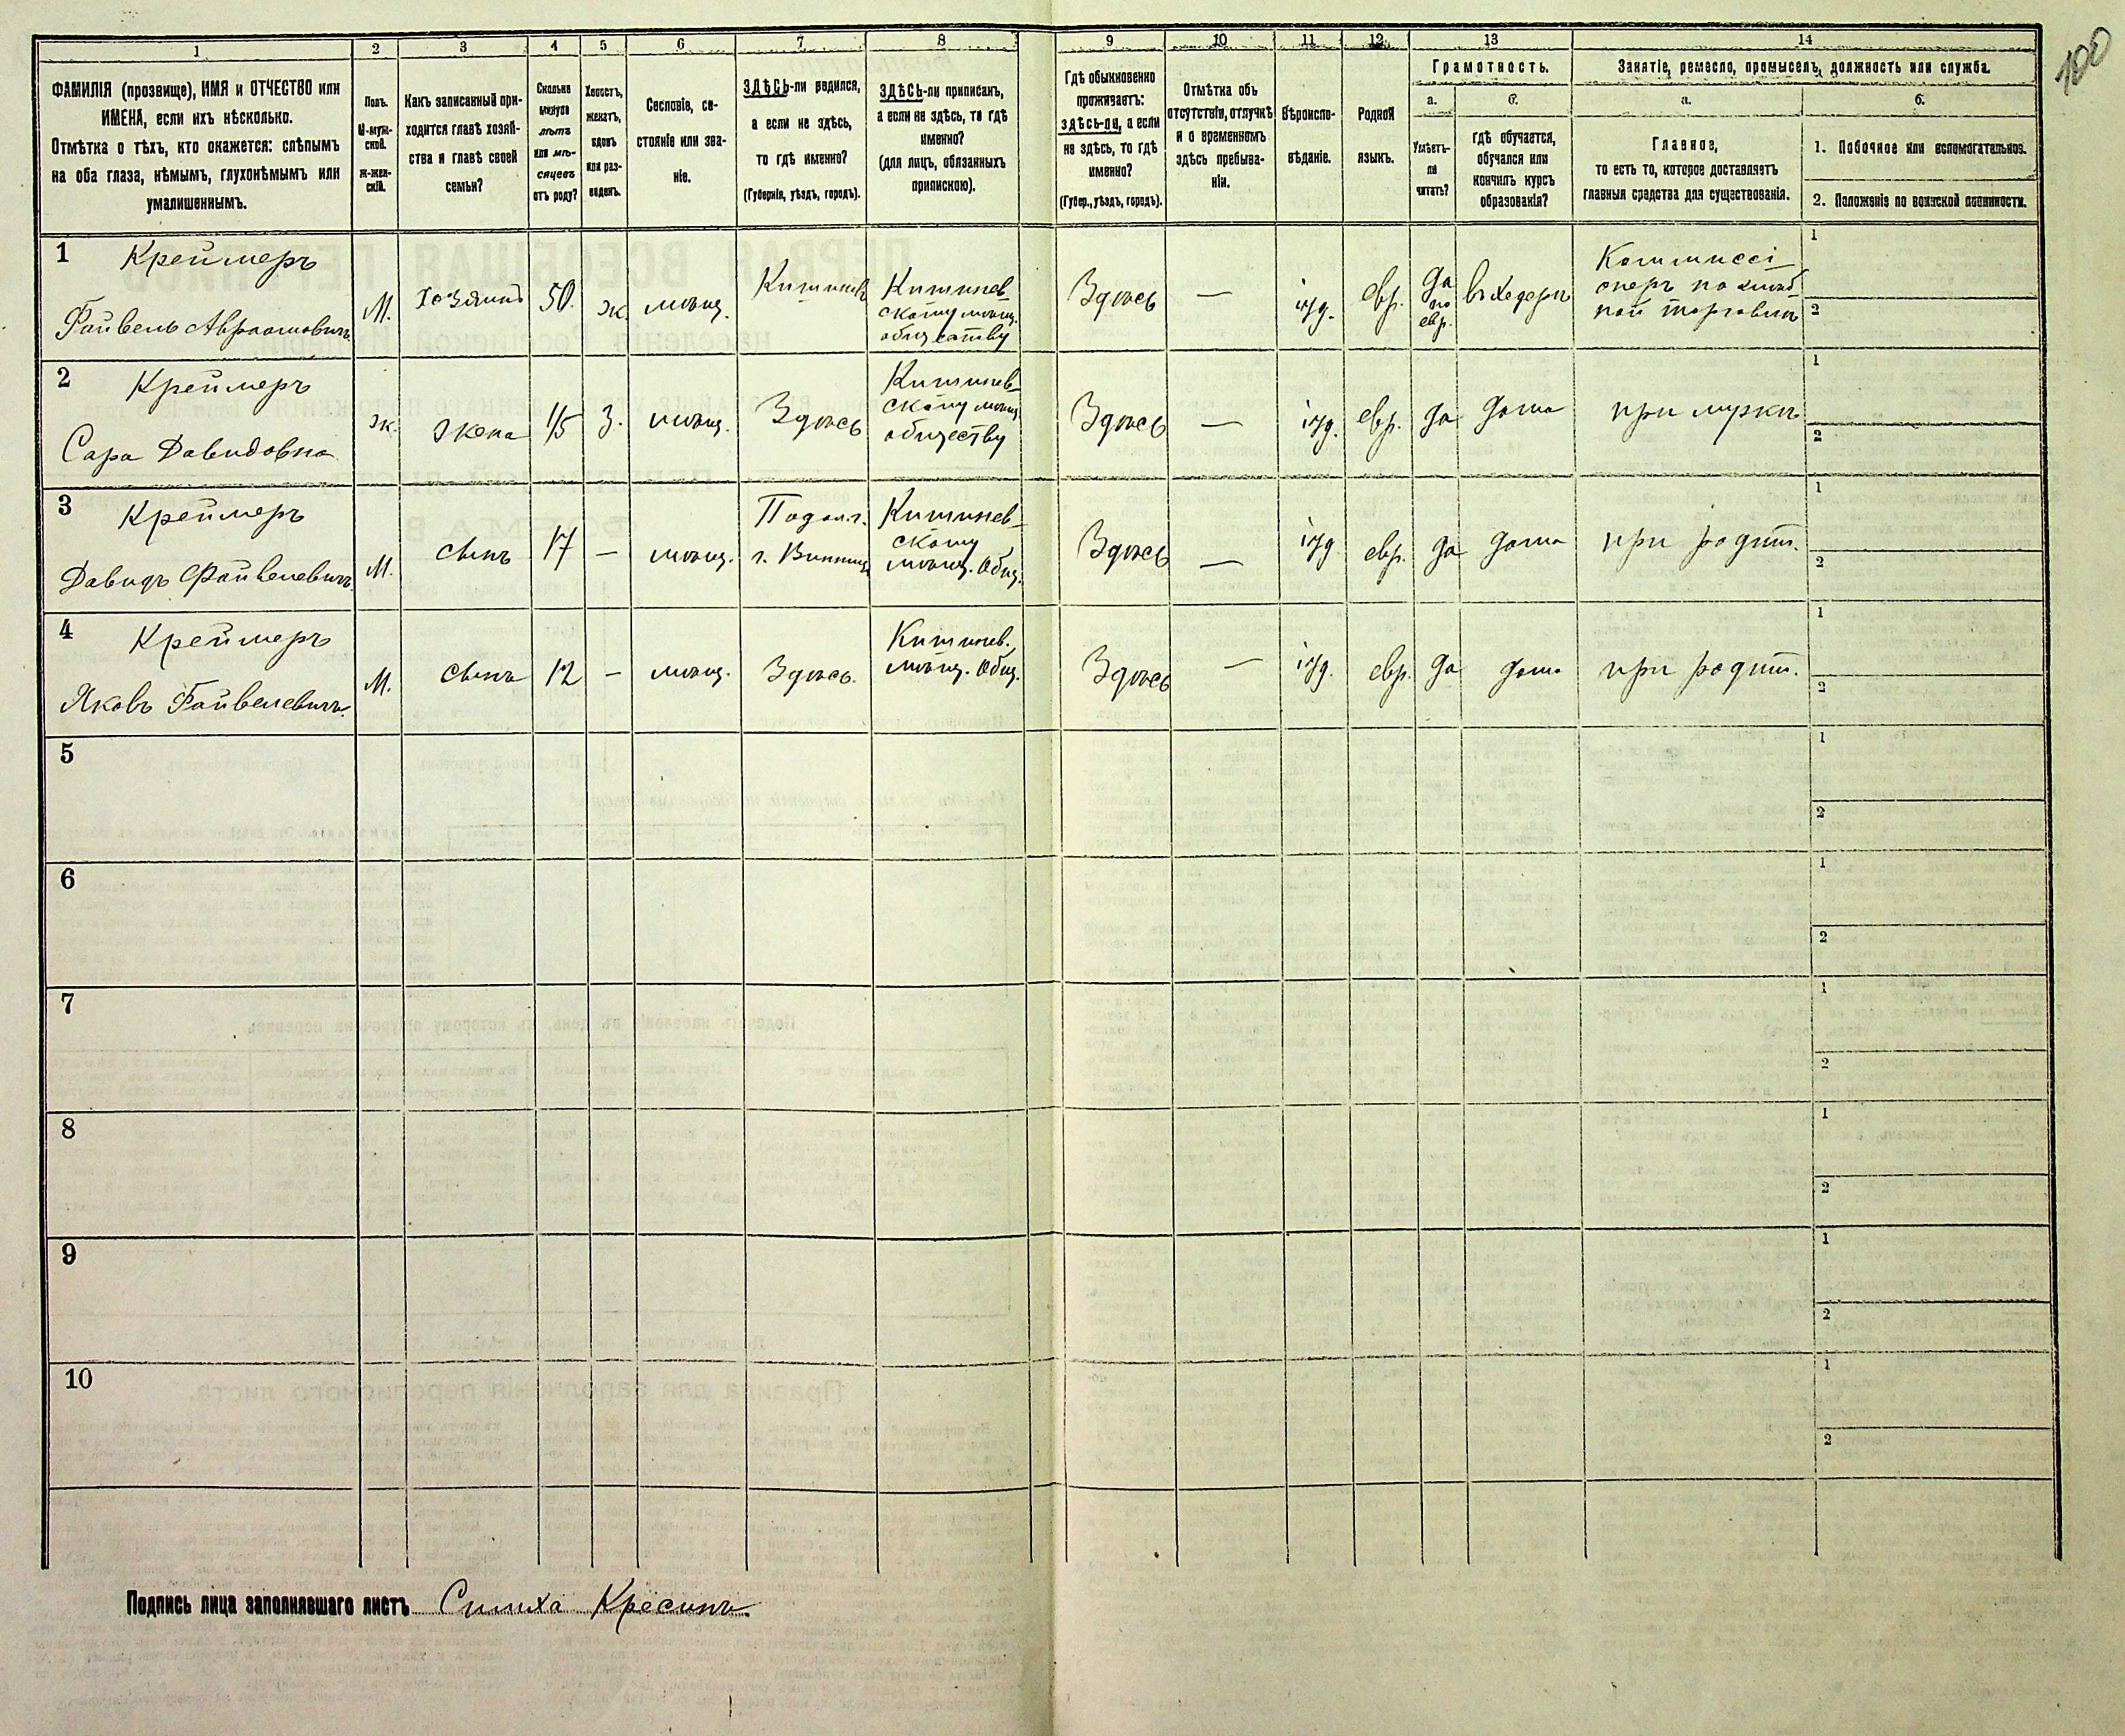 100
1 2 3 4 5 6 7 8 9 10 11 12 13 14
ФАМИЛІЯ (прозвище), ИМЯ и ОТЧЕСТВО или
ИМЕНА, если ихъ нѣсколько.
Отмѣтка о тѣхъ, кто окажется: слѣпымъ
на оба глаза, нѣмымъ, глухонѣмымъ или
умалишеннымъ.
Полъ.
М-муж-
ской.
Ж-жен-
скій.
Какъ записанный при-
ходится главѣ хозяй-
ства и главѣ своей
семьи?
Сколько
минуло
лѣтъ
или мѣ-
сяцевъ
отъ роду?
Холостъ,
женатъ,
вдовъ
или раз-
веденъ.
Сословіе, со-
стояніе или зва-
ніе.
ЗДѢСЬ-ли родился,
а если не здѣсь,
то гдѣ именно?
(Губернія, уѣздъ, городъ).
ЗДѢСЬ-ли приписанъ,
а если не здѣсь, то гдѣ
именно?
(для лицъ, обязанныхъ
припискою).
Гдѣ обыкновенно
проживаетъ:
здѣсь-ли, а если
не здѣсь, то гдѣ
именно?
(Губер., уѣздъ, городъ).
Отмѣтка объ
отсутствіи, отлучкѣ
и о временномъ
здѣсь пребыва-
ніи.
Вѣроиспо-
вѣданіе.
Родной
языкъ.
Грамотность.
а.
Умѣетъ-
ли
читать?
б.
гдѣ обучается,
обучался или
кончилъ курсъ
образованія?
Занятіе, ремесло, промыселъ, должность или служба.
а.
Главное,
то есть то, которое доставляетъ
главныя средства для существованія.
б.
1. Побочное или вспомогательное.
2. Положеніе по воинской повинности.
1
Креймеръ
Файвель Абрамовичъ
М.
Хозяинъ
50.
ж.
мѣщ.
Кишиневъ
Кишинев-
скому мѣщ.
обществу
Здѣсь
—
іуд.
евр.
да
по
евр.
въ хедерѣ
Коммиссі-
онеръ по хлѣб-
ной торговлѣ
1
2
2
Креймеръ
Сара Давидовна
ж.
Жена
45
З.
мѣщ.
Здѣсь
Кишинев-
скому мѣщ.
обществу
Здѣсь
—
іуд.
евр.
да
дома
при мужѣ
1
2
3
Креймеръ
Давидъ Файвелевичъ
М.
сынъ
17
—
мѣщ.
Подол. г.
г. Винница
Кишинев-
скому
мѣщ. Общ.
Здѣсь
—
іуд
евр.
да
дома
при родит.
1
2
4
Креймеръ
Яковъ Файвелевичъ
М.
сынъ
12
—
мѣщ.
Здѣсь.
Кишинев.
мѣщ. Общ.
Здѣсь
—
іуд.
евр.
да
дома
при родит.
1
2
5
1
2
6
1
2
7
1
2
8
1
2
9
1
2
10
1
2
Подпись лица заполнявшаго листъ Симха Кресинъ